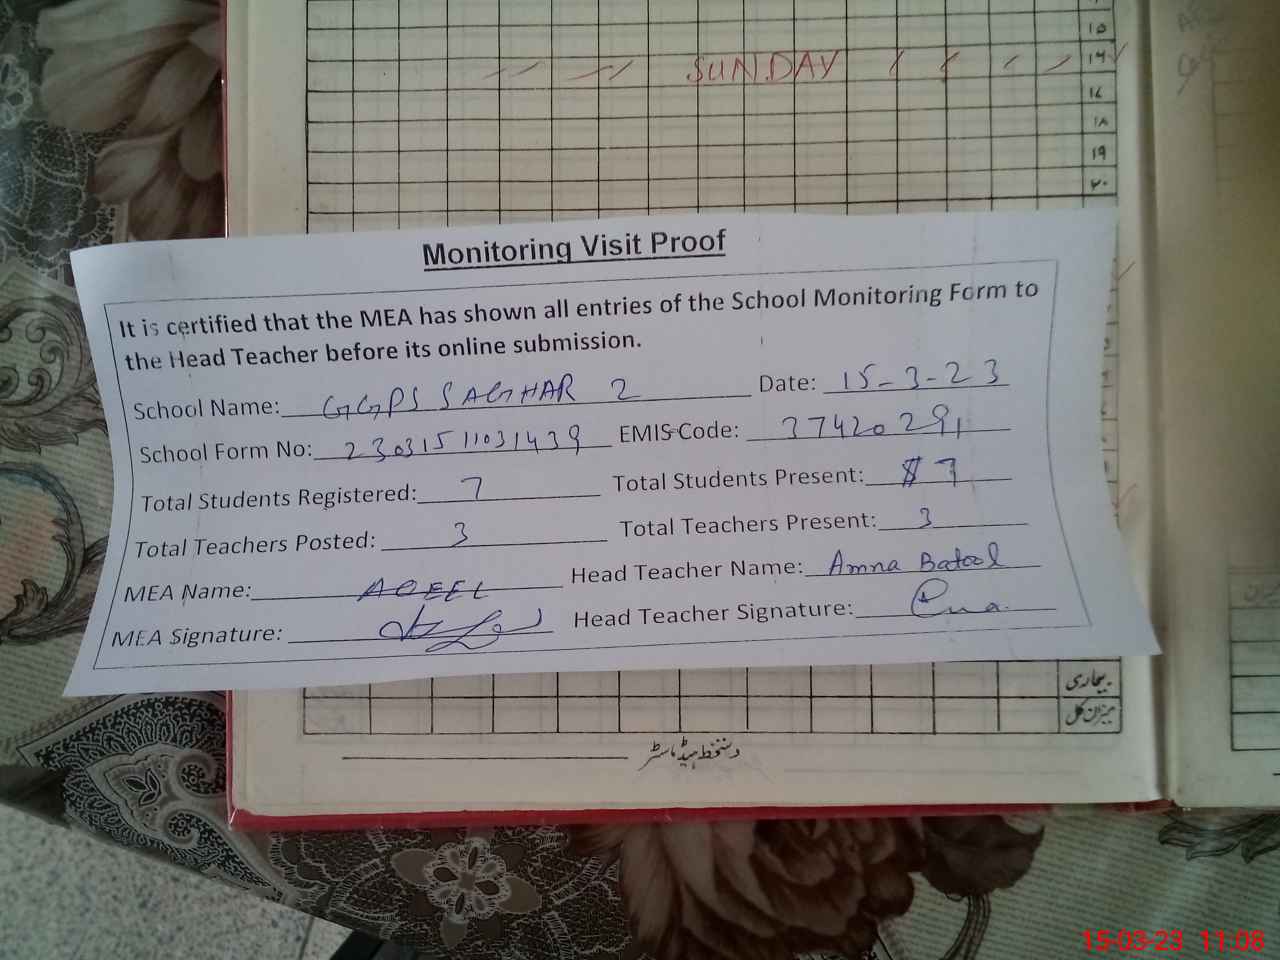 ۱۵
SUNDAY ۱۷
۱۶
۱۸
۱۹
۲۰
Monitoring Visit Proof
It is certified that the MEA has shown all entries of the School Monitoring Form to
the Head Teacher before its online submission.
School Name: GGPS SAGHAR 2 Date: 15-3-23
School Form No: 23031511031439 EMIS Code: 37420291
Total Students Registered: 7 Total Students Present: 7
Total Teachers Posted: 3 Total Teachers Present: 3
MEA Name: AQEEL Head Teacher Name: Amna Batool
MEA Signature: Head Teacher Signature:
بیماری
میزان کل
دستخط ہیڈ ماسٹر
15-03-23 11:08